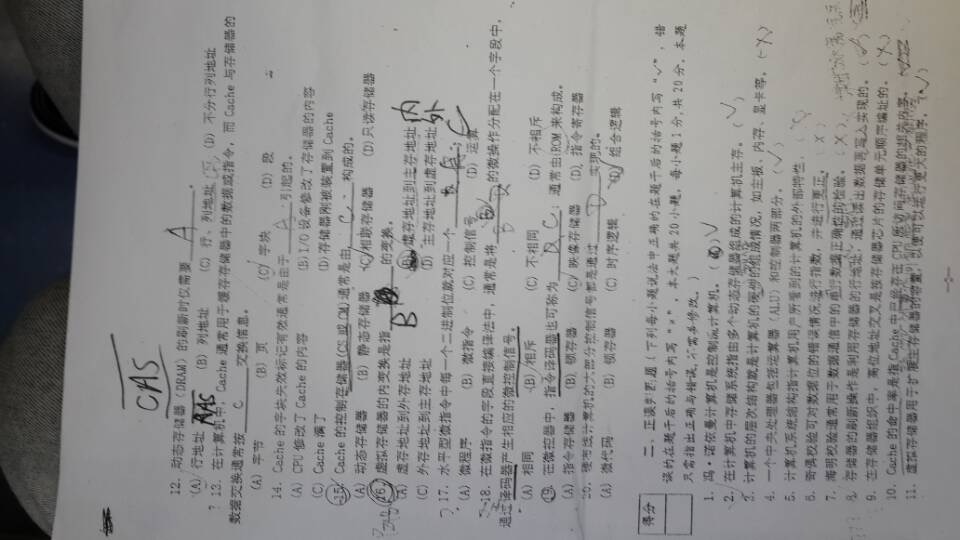 CAS
12. 动态存储器（DRAM）的刷新时仅需要 A 。
(A) 行地址 RAS (B) 列地址 (C) 行、列地址 (D) 不分行列地址
? 13. 在计算机中，Cache 通常用于缓存存储器中的数据或指令，而 Cache 与存储器的
数据交换通常按 C 交换信息。
(A) 字节 (B) 页 (C) 字块 (D) 段
14. Cache 的字块失效标记有效通常是由于 A 引起的。
(A) CPU 修改了 Cache 的内容 (B) I/O 设备修改了存储器的内容
(C) Cache 满了 (D) 存储器刚被装置到 Cache
15. Cache 的控制存储器(CS 或 CM)通常是由 C 构成的。
(A) 动态存储器 (B) 静态存储器 (C) 相联存储器 (D) 只读存储器
16. 虚拟存储器的内变换是指 的变换。
(A) 虚存地址到外存地址 B (B) 虚存地址到主存地址 内
(C) 外存地址到主存地址 (D) 主存地址到虚存地址 外
17. 水平型微指令中每一个二进制位就对应一个 C
(A) 微程序 (B) 微指令 (C) 控制信号 (D) 运算
18. 在微指令的字段直接编译法中，通常是将 B 的微操作分配在一个字段中，
通过译码器产生相应的微控制信号。
(A) 相同 (B) 相斥 (C) 不相同 (D) 不相斥
19. 在微控器中，指令译码器也可称为 C ；通常由 ROM 来构成。
(A) 指令存储器 (B) 锁存器 (C) 映像存储器 (D) 指令寄存器
20. 硬布线计算机的大部分控制信号都是通过 D 实现的。
(A) 微代码 (B) 锁存器 (C) 时序逻辑 (D) 组合逻辑
得分
二、正误判断题（下列每小题说法中正确的在题干后的括号内写“√”，错
误的在题干后的括号内写“×”，本大题共 20 小题，每小题 1 分,共 20 分。本题
只需指出正确与错误,不需要修改。）
1. 冯·诺依曼计算机是控制流计算机。（ ）√
2. 在计算机中存储系统指由多个动态存储器组成的计算机主存。（√）
3. 计算机的层次结构就是计算机的硬件的组成情况，如主板、内存、显卡等。（×）
4. 一个中央处理器包括运算器（ALU）和控制器两部分。（√）
5. 计算机系统结构指计算机用户所看到的计算机的外部特性。（ ）
6. 奇偶校验可对数据位的错误情况进行指数，并进行更正。（×）
7. 海明校验通常用于数据通信中的串行数据正确性的检验。（×）
8. 存储器的刷新操作是利用存储器的行地址，通过读出数据再写入实现的。（√）
9. 在存储器组织中，高位地址交叉是按存储器芯片的存储单元顺序编址的。（×）
10. Cache 的命中率是指 Cache 中已经存在 CPU 所访问存储器的相关内容。
11. 虚拟存储器用于扩展主存储器的容量，以便可以运行更大的程序。（√）